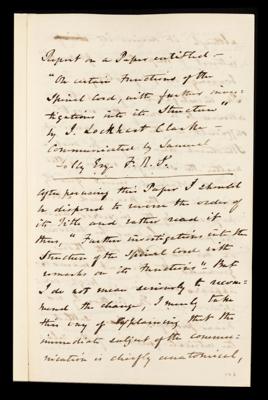 Report on a Paper entitled –
"On certain Functions of the
Spinal Cord, with further inves-
tigations into its Structure"
by J. Lockhart Clarke –
Communicated by Samuel
Solly Esq. F.R.S.
After perusing this Paper I should
be disposed to reverse the order of
its title and rather read it
thus, "Further investigations into the
Structure of the Spinal Cord with
remarks on its functions". But
I do not mean seriously to recom-
mend the change, I merely take
this way of explaining that the
immediate subject of the commu-
nication is chiefly anatomical,